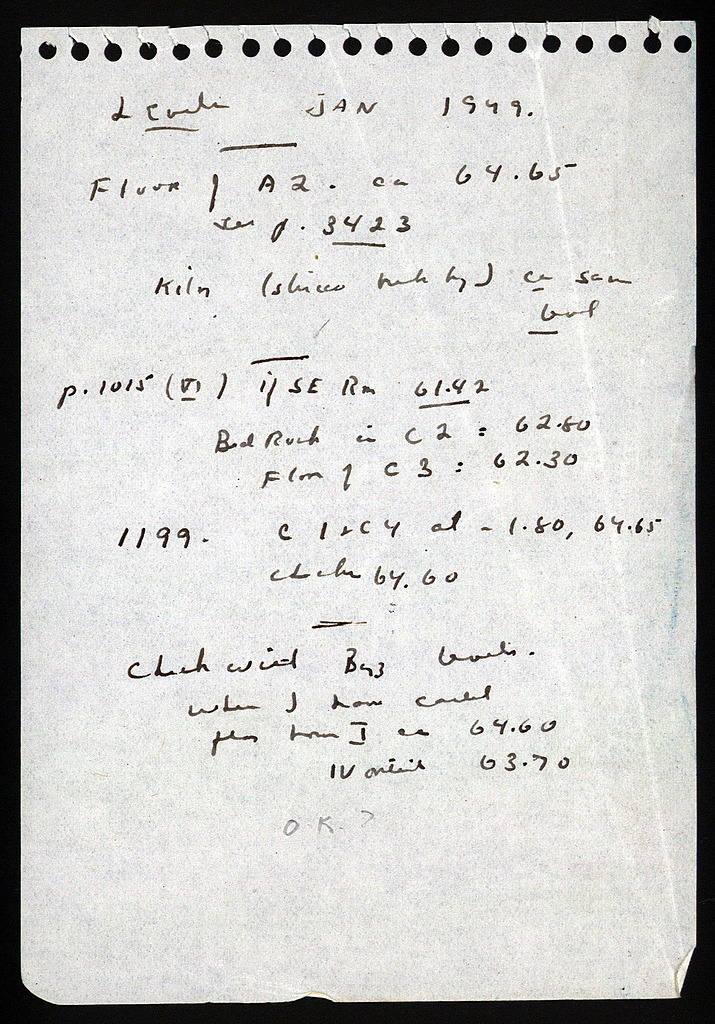 Levels JAN 1949.
Floor of A2. ca 64.65
see p. 3423
Kiln (stucco ) ca same
level
p. 1015 (VI) if SE Rm 61.42
Bed Rock in C2 = 62.80
Floor of C3 : 62.30
1199. C 1 & C4 at - 1.80, 64.65
check 64.60
Check with levels.
when I have
from I ca 64.60
IV 63.70
OK?